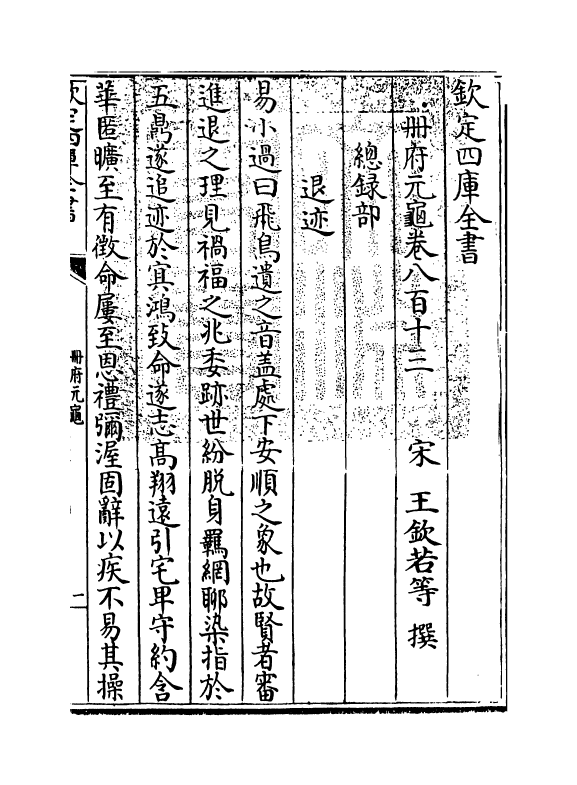 欽定四庫全書
冊府元龜卷八百十三　宋　王欽若等　撰
總録部
退迹
易小過曰飛鳥遺之音葢處下安順之象也故賢者審
進退之理見禍福之兆委跡世紛脱身羈網聊染指於
五鼎遂追迹於㝠鴻致命遂志高翔遠引宅卑守約含
華匿曠至有徵命屢至恩禮彌渥固辭以疾不易其操
欽定四庫全書
冊府元龜
二